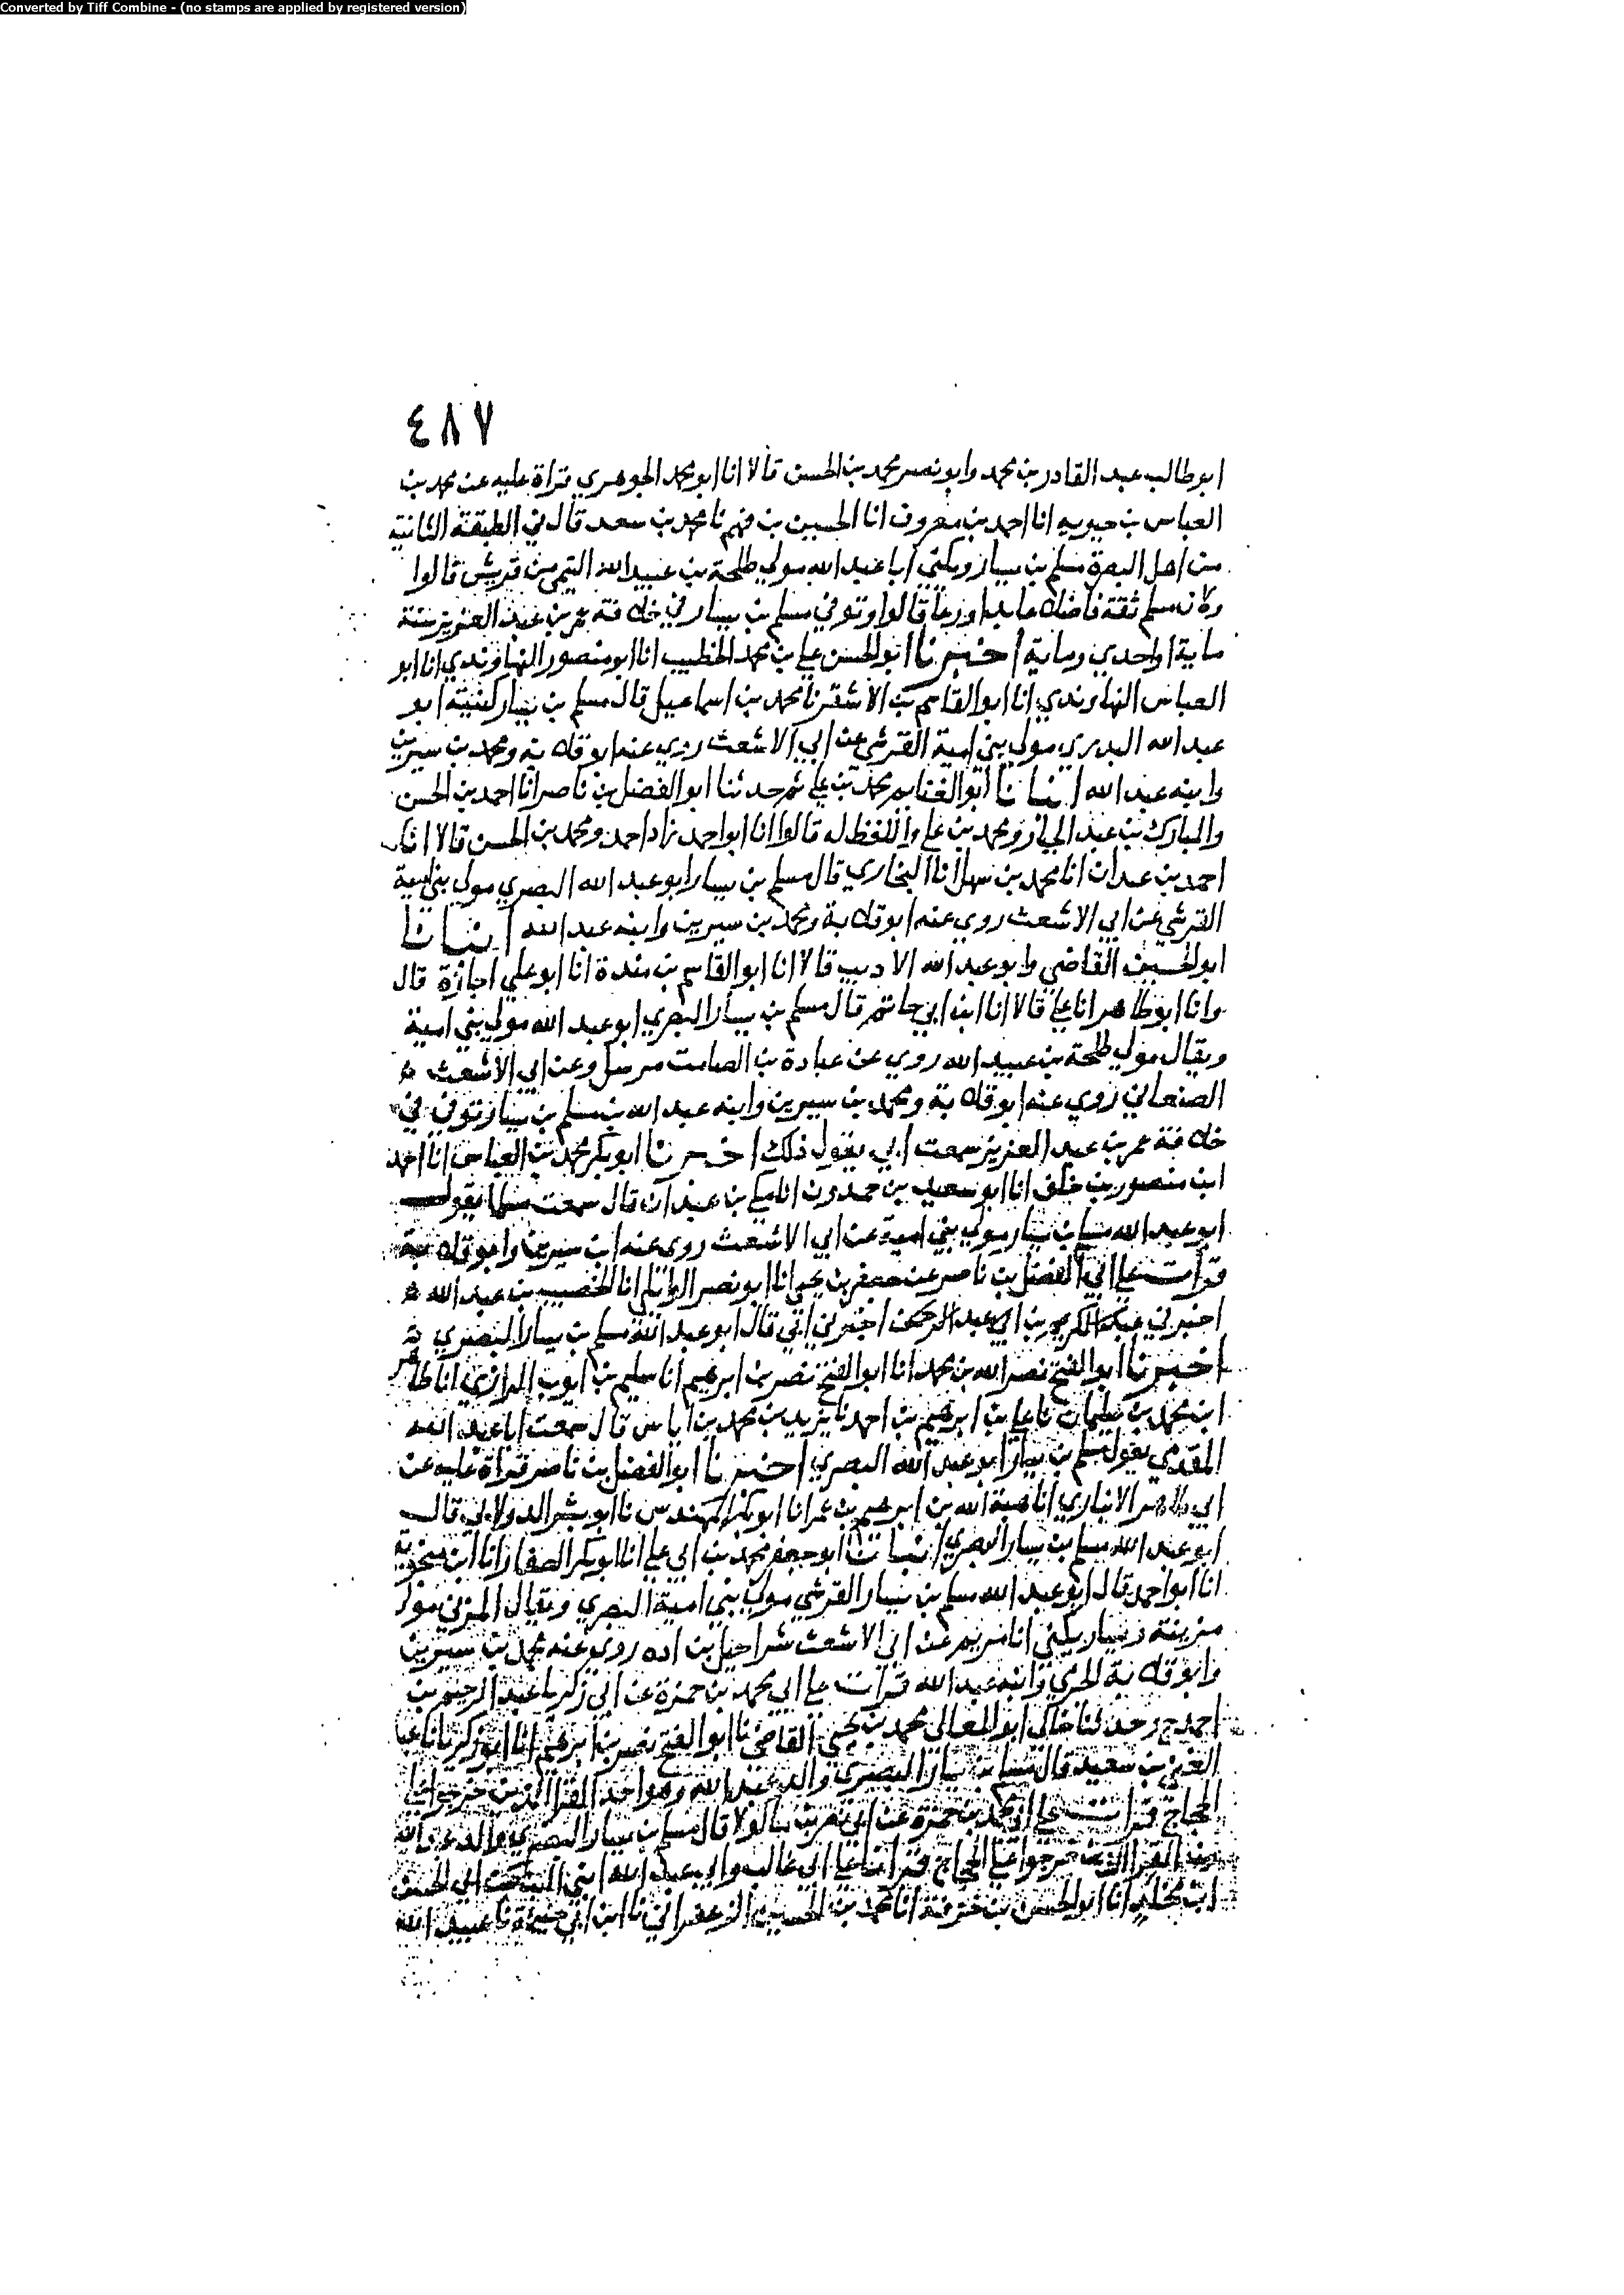 Converted by Tiff Combine - (no stamps are applied by registered version)
٤٨٧
ابو طالب عبد القادر بن محمد وابو نصر محمد بن الحسن قالا انا ابو محمد الجوهري قراة عليه عن محمد بن
العباس بن حيويه انا احمد بن معروف انا الحسين بن فهم نا محمد بن سعد قال في الطبقة الثانية
من اهل البصرة مسلم بن يسار ويكنى ابا عبد الله مولى طلحة بن عبيد الله التيمي من قريش قالوا
وكان مسلم ثقة فاضلا عابدا ورعا قالوا وتوفي مسلم بن يسار في خلافة عمر بن عبد العزيز سنة
ماية او احدى وماية اخبرنا ابو الحسن علي بن محمد الخطيب انا ابو منصور النهاوندي انا ابو
العباس النهاوندي انا ابو القاسم بن الاشقر نا محمد بن اسماعيل قال مسلم بن يسار كنيته ابو
عبد الله البصري مولى بني امية القرشي عن ابي الاشعث روى عنه ابو قلابة ومحمد بن سيرين
وابنه عبد الله انبانا ابو الغنايم محمد بن علي ثم حدثنا ابو الفضل بن ناصر انا احمد بن الحسن
والمبارك بن عبد الجبار ومحمد بن علي واللفظ له قالوا انا ابو احمد زاد احمد ومحمد بن الحسن قالا انا
احمد بن عبدان انا محمد بن سهل انا البخاري قال مسلم بن يسار ابو عبد الله البصري مولى بني امية
القرشي عن ابي الاشعث روى عنه ابو قلابة ومحمد بن سيرين وابنه عبد الله انبانا
ابو الحسين القاضي وابو عبد الله الاديب قالا انا ابو القاسم بن مندة انا ابو علي اجازة قال
وانا ابو طاهر انا علي قالا انا ابن ابي حاتم قال مسلم بن يسار البصري ابو عبد الله مولى بني امية
ويقال مولى طلحة بن عبيد الله روى عن عبادة بن الصامت مرسل وعن ابي الاشعث
الصنعاني روى عنه ابو قلابة ومحمد بن سيرين وابنه عبد الله بن مسلم بن يسار توفي في
خلافة عمر بن عبد العزيز سمعت ابي يقول ذلك اخبرنا ابو بكر محمد بن العباس انا احمد
ابن منصور بن خلف انا ابو سعيد بن حمدون انا مكي بن عبدان قال سمعت مسلما يقول
ابو عبد الله مسلم بن يسار مولى بني امية عن ابي الاشعث روى عنه ابن سيرين وابو قلابة
قرات على ابي الفضل بن ناصر عن جعفر بن يحيى انا ابو نصر الوائلي انا الخصيب بن عبد الله
اخبرني عبد الكريم بن ابي عبد الرحمن اخبرني ابي قال ابو عبد الله مسلم بن يسار البصري
اخبرنا ابو الفتح نصر الله بن محمد انا ابو الفتح نصر بن ابرهيم انا سليم بن ايوب الرازي انا طاهر
ابن محمد بن سليمان نا علي بن ابرهيم بن احمد نا يزيد بن محمد بن اياس قال سمعت ابا عبد الله
المقدمي يقول مسلم بن يسار ابو عبد الله البصري اخبرنا ابو الفضل بن ناصر قراة عليه عن
ابي طاهر الانباري انا هبة الله بن ابرهيم بن عمر انا ابو بكر المهندس نا ابو بشر الدولابي قال
ابو عبد الله مسلم بن يسار البصري انبانا ابو جعفر محمد بن ابي علي انا ابو بكر الصفار انا ابن منجويه
انا ابو احمد قال ابو عبد الله مسلم بن يسار القرشي مولى بني امية البصري ويقال المزني مولى
مزينة عن ابي الاشعث شراحيل بن اده روى عنه محمد بن سيرين
وابو قلابة الجرمي وابنه عبد الله قرات على ابي محمد بن حمزة عن ابي زكريا عبد الرحيم بن
احمد ح وحدثنا خالي ابو المعالي محمد بن يحيى القاضي نا ابو الفتح نصر بن ابرهيم انا ابو زكريا نا عبد
الغني بن سعيد قال مسلم بن يسار البصري والد عبد الله وهو احد القرا الذين خرجوا على
الحجاج قرات على ابي محمد بن حمزة عن ابي نصر بن ماكولا قال مسلم بن يسار البصري والد عبد الله
من القرا الذين خرجوا على الحجاج قرانا على ابي غالب وابي عبد الله ابني البنا عن ابي الحسن
ابن مخلد انا ابو الحسن بن خزفة انا محمد بن الحسين الزعفراني نا ابن ابي خيثمة نا عبيد الله